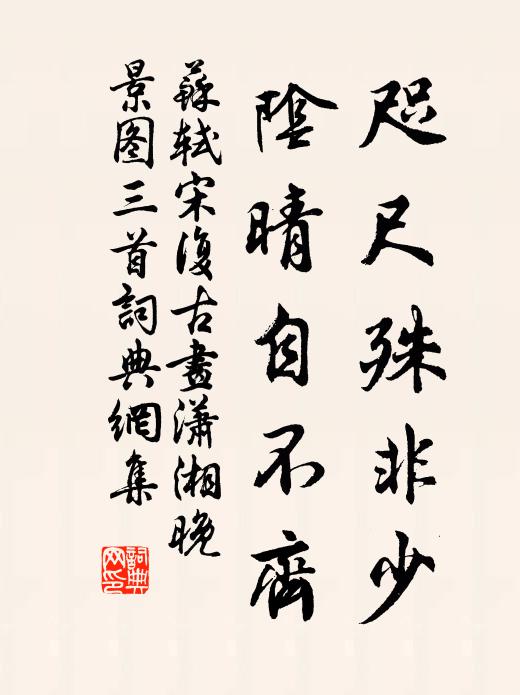 咫尺殊非少
陰晴自不齊
蘇軾宋復古畫瀟湘晚
景图三首詞典網集
詞典网印